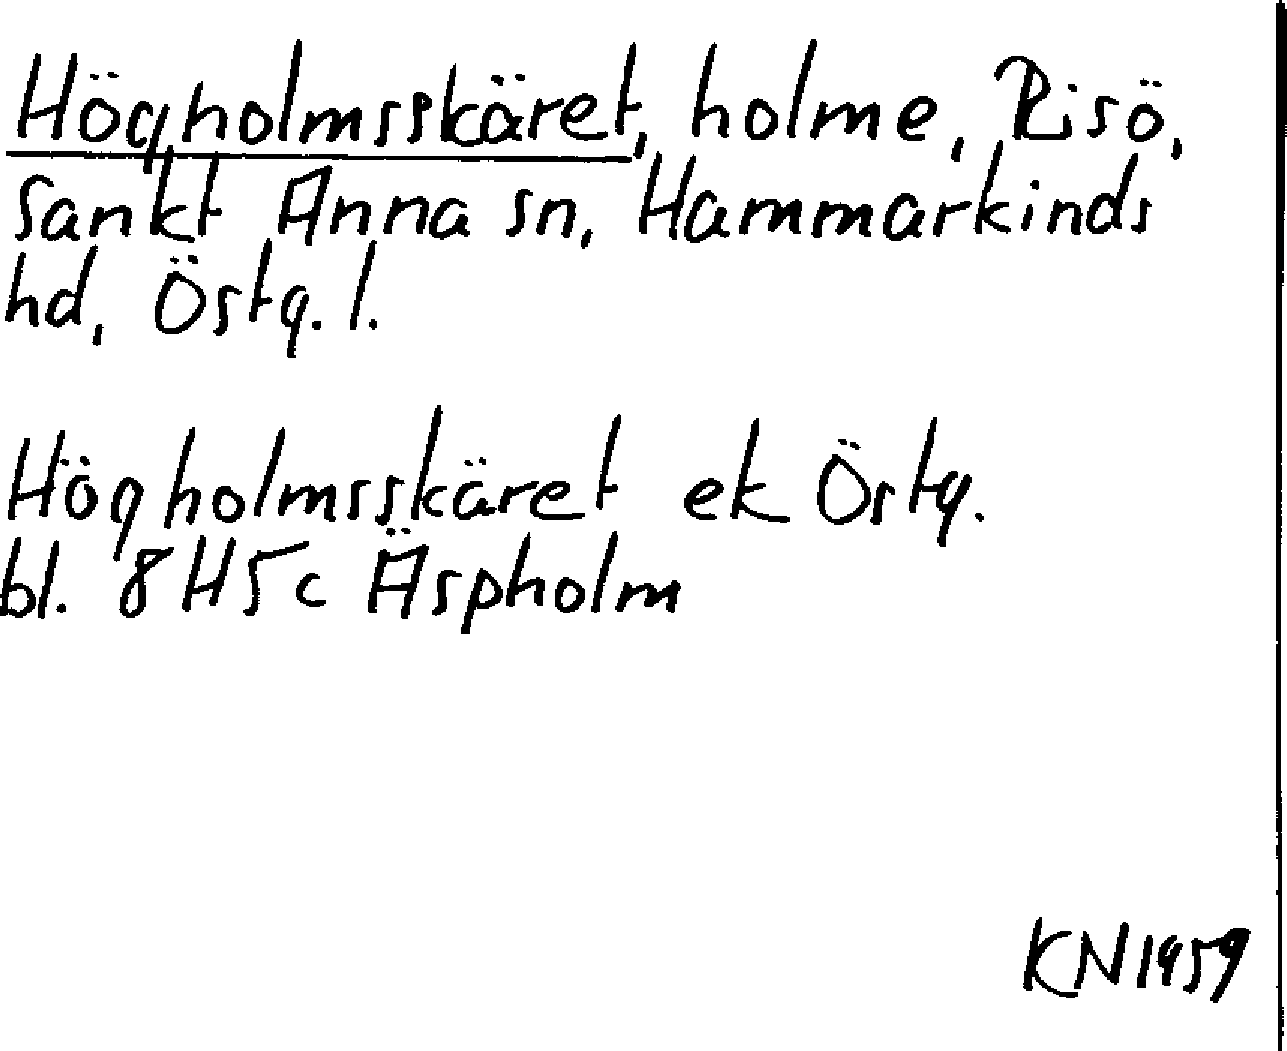 Högholmsskäret, holme, Risö,
Sankt Anna sn, Hammarkinds
hd, Östg. l.
Högholmsskäret ek Östg.
bl. 8H5c Äspholm
KN 1959